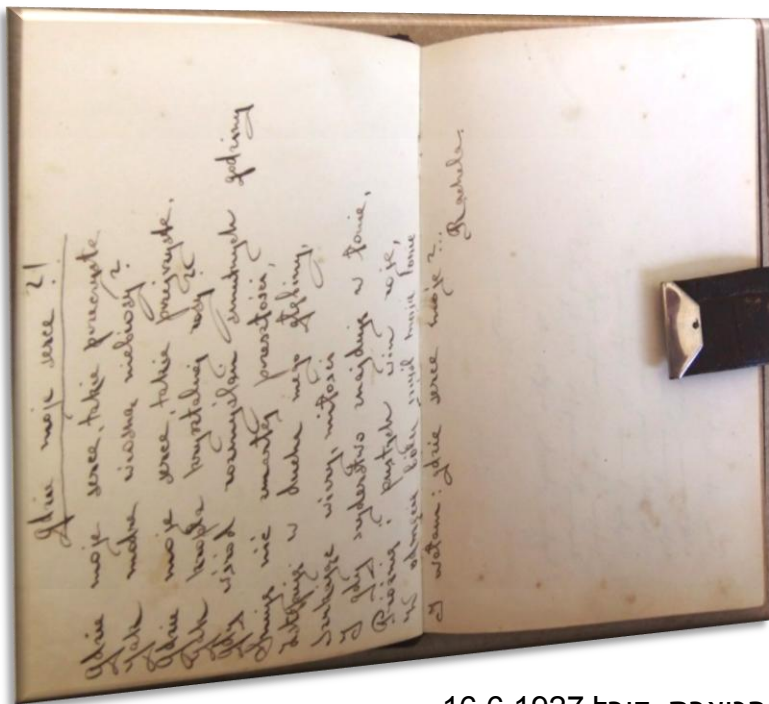 Gdzie moje serce?!
Gdzie moje serce, takie przeczyste
Jak modra wiosną niebiosy?
Gdzie moje serce, takie przejrzyste,
Jak kropla kryształnej rosy?
Gdy wśród rozmyślań smutnych godziny
Snuję nić zmarłej przeszłości,
w ducha mego głębiny,
Szukając wiary, miłości
I gdy szyderstwo znajduję w łonie,
Próżnię i pustych win roje,
W odmęcie bólu myśl moja tonie
I wołam: gdzie serce moje?..
Rachela.
16.6.1927